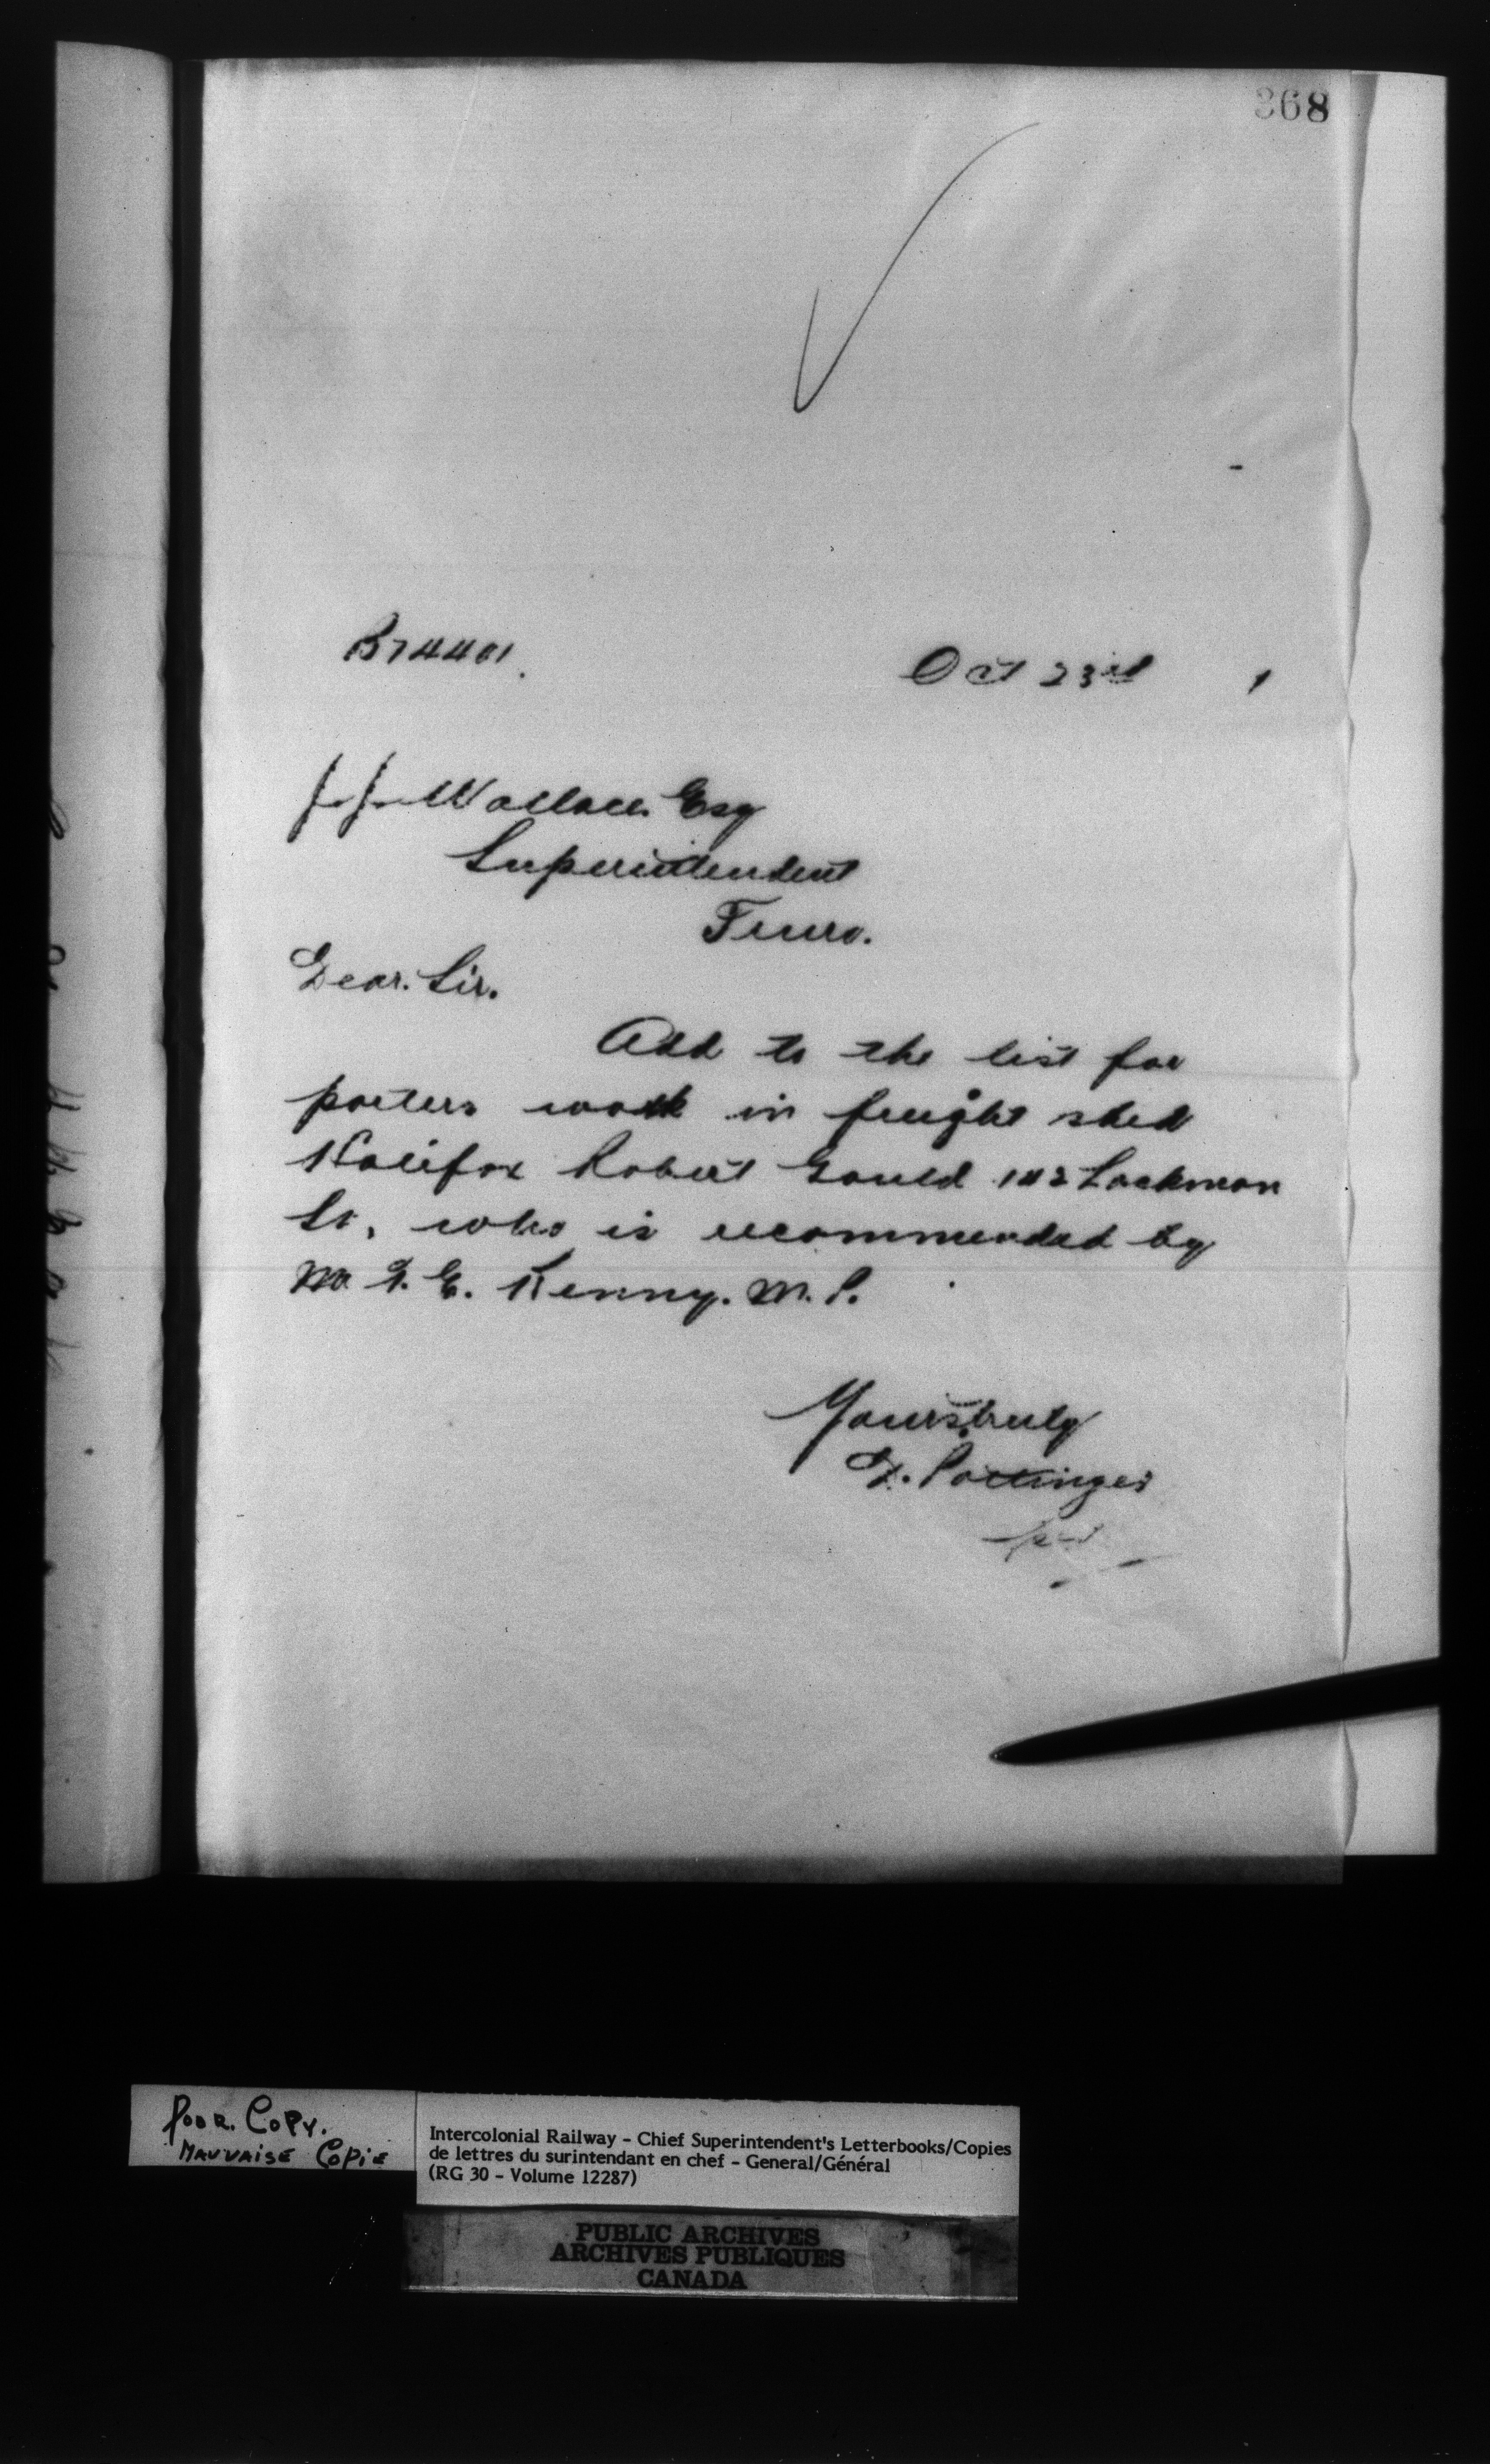 368
B74401.
Oct 23rd 1
J. J. Wallace Esq
Superintendent
Truro.
Dear. Sir.
Add to the list for
porters work in freight shed
Halifax Robert Gould 142 Lockman
St, who is recommended by
Mr T. E. Kenny. M. P.
Yours truly
D. Pottinger
POOR. COPY.
MAUVAISE COPIE
Intercolonial Railway - Chief Superintendent's Letterbooks/Copies
de lettres du surintendant en chef - General/Général
(RG 30 - Volume 12287)
PUBLIC ARCHIVES
ARCHIVES PUBLIQUES
CANADA